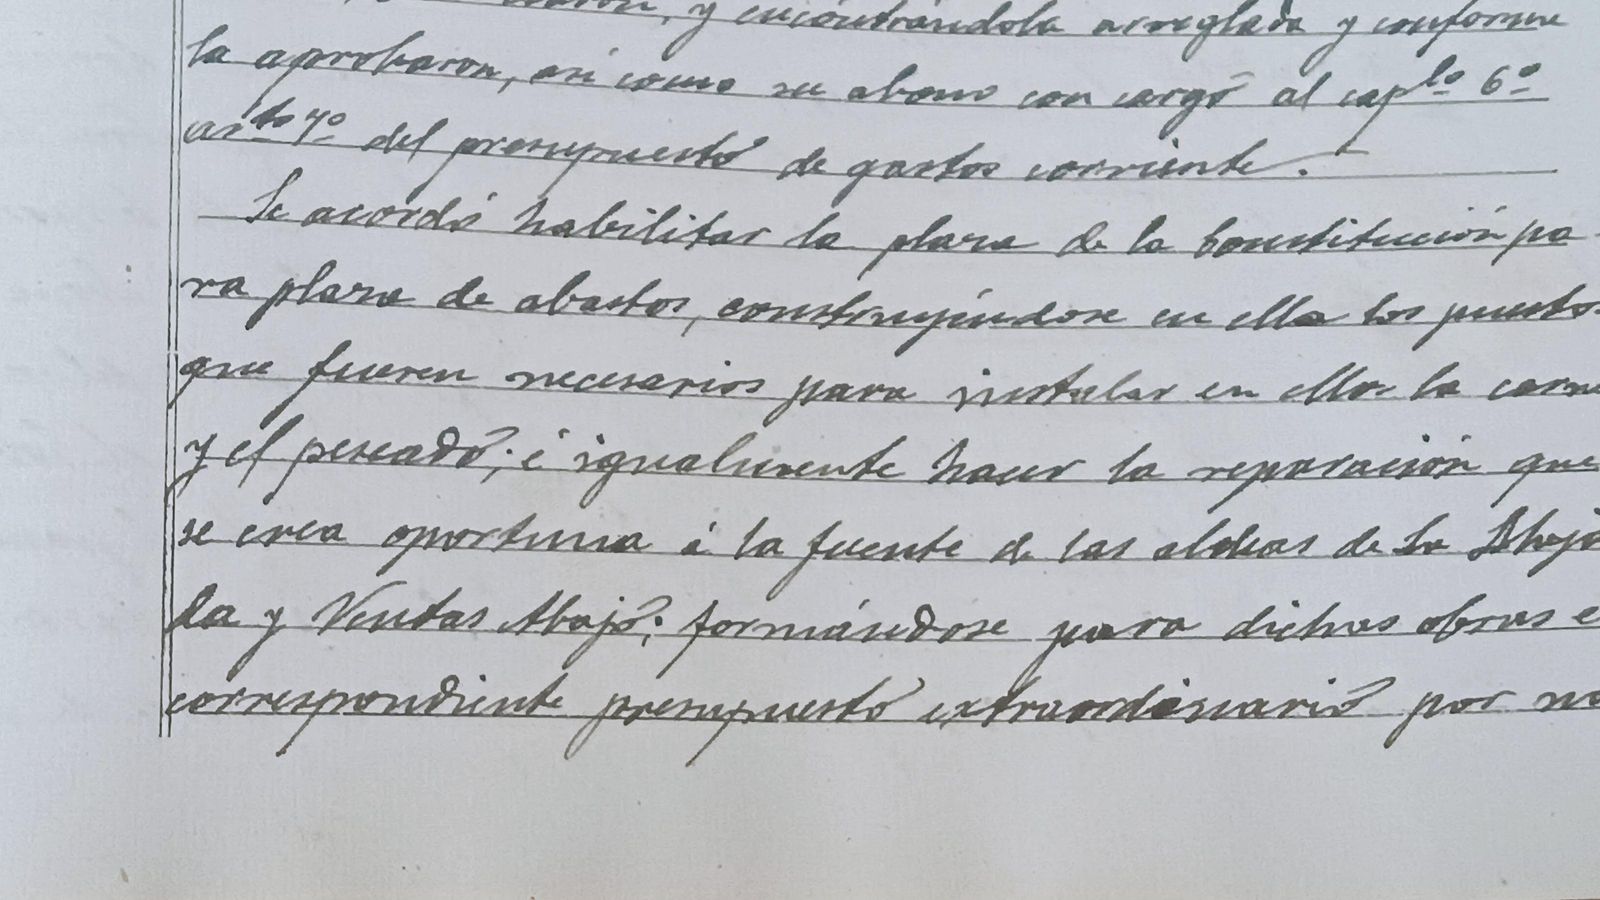 y encontrándola arreglada y conforme
la aprobaron, así como su abono con cargo al caplo 6º
arto 7º del presupuesto de gastos corriente.
Se acordó habilitar la plaza de la Constitución pa-
ra plaza de abastos, construyéndose en ella los puestos
que fueren necesarios para instalar en ellos la carne
y el pescado; é igualmente hacer la reparación que
se crea oportuna á la fuente de las aldeas de la
da y Ventas Abajo; formándose para dichas obras e
correspondiente presupuesto extraordinario por no